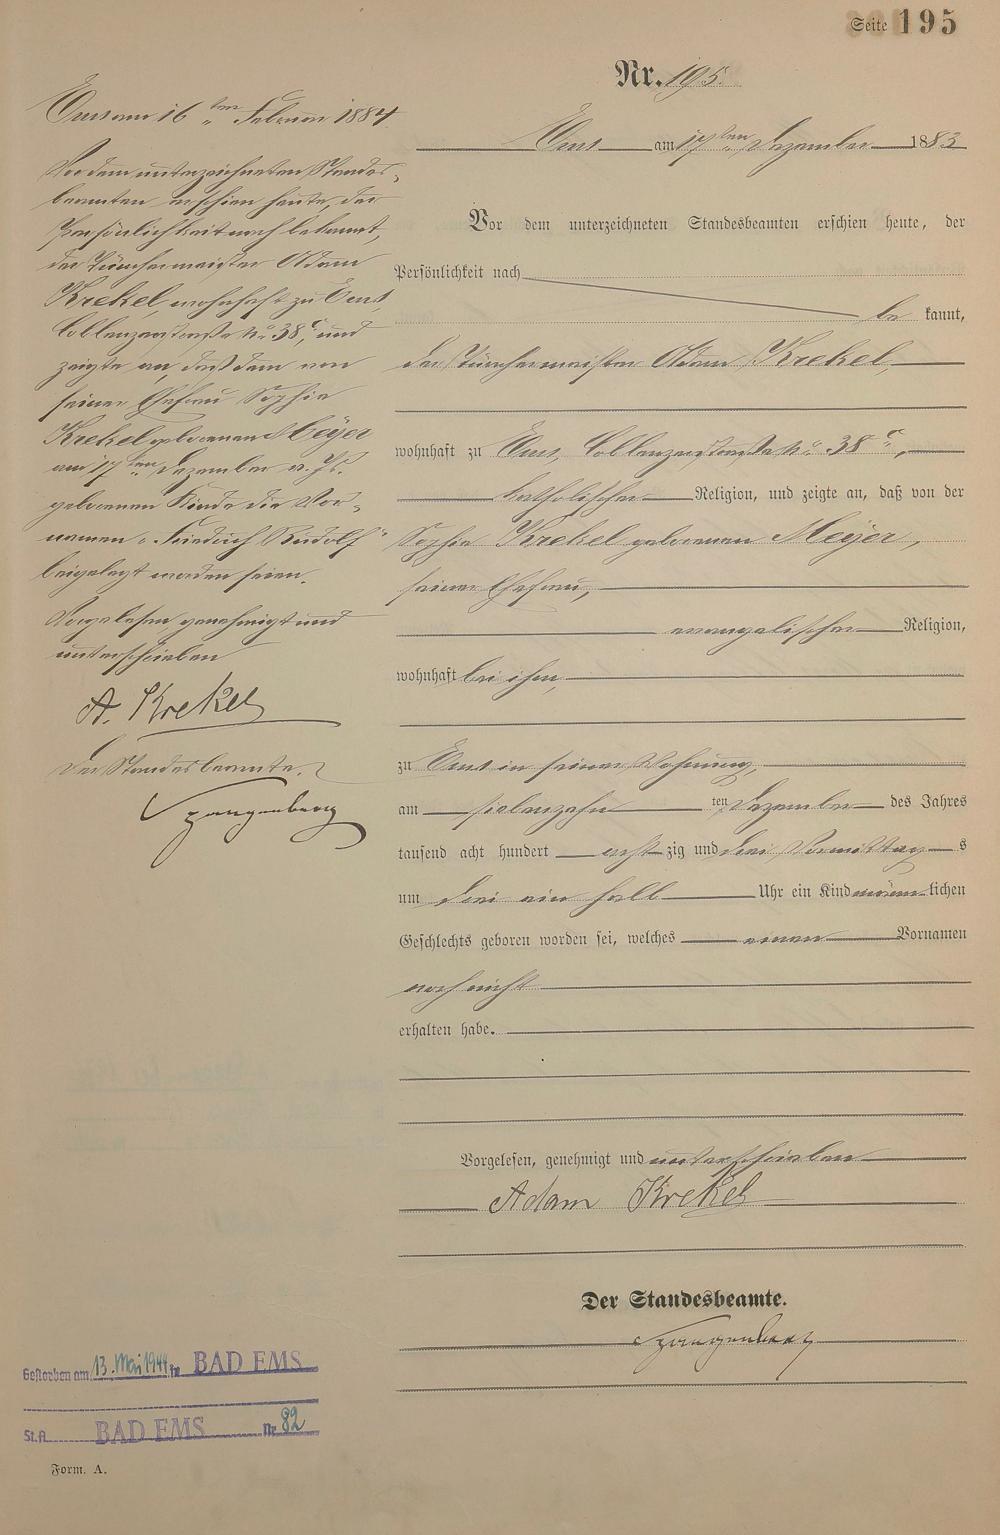 Seite 195
Nr. 195.
Ems am 17ten Dezember 1883
Vor dem unterzeichneten Standesbeamten erschien heute, der
Persönlichkeit nach
be kannt,
der Tünchermeister Adam Krekel,
wohnhaft zu Ems, Coblenzerstraße No 38c,
katholischer Religion, und zeigte an, daß von der
Sophie Krekel geborenen Meÿer,
seiner Ehefrau,
evangelischer Religion,
wohnhaft bei ihm,
zu Ems in seiner Wohnung,
am siebenzehn ten Dezember des Jahres
tausend acht hundert acht zig und drei Vormittag s
um drei ein halb Uhr ein Kind männ lichen
Geschlechts geboren worden sei, welches einen Vornamen
noch nicht
erhalten habe.
Vorgelesen, genehmigt und unterschrieben
Adam Krekel
Der Standesbeamte.
Spangenberg
Ems am 16ten Februar 1884.
Vor dem unterzeichneten Standes-
beamten erschien heute, der
Persönlichkeit nach bekannt,
der Tünchermeister Adam
Krekel, wohnhaft zu Ems,
Coblenzerstraße No 38c, und
zeigte an, daß dem von
seiner Ehefrau Sophie
Krekel geborenen Meÿer
am 17ten Dezember v. Js.
geborenen Kinde die Vor-
namen „Friedrich Rudolf“
beigelegt worden seien.
Vorgelesen genehmigt und
unterschrieben
A. Krekel
Der Standesbeamte.
Spangenberg
Gestorben am 13. Mai 1944 in BAD EMS
St.A. BAD EMS Nr. 82
Form. A.